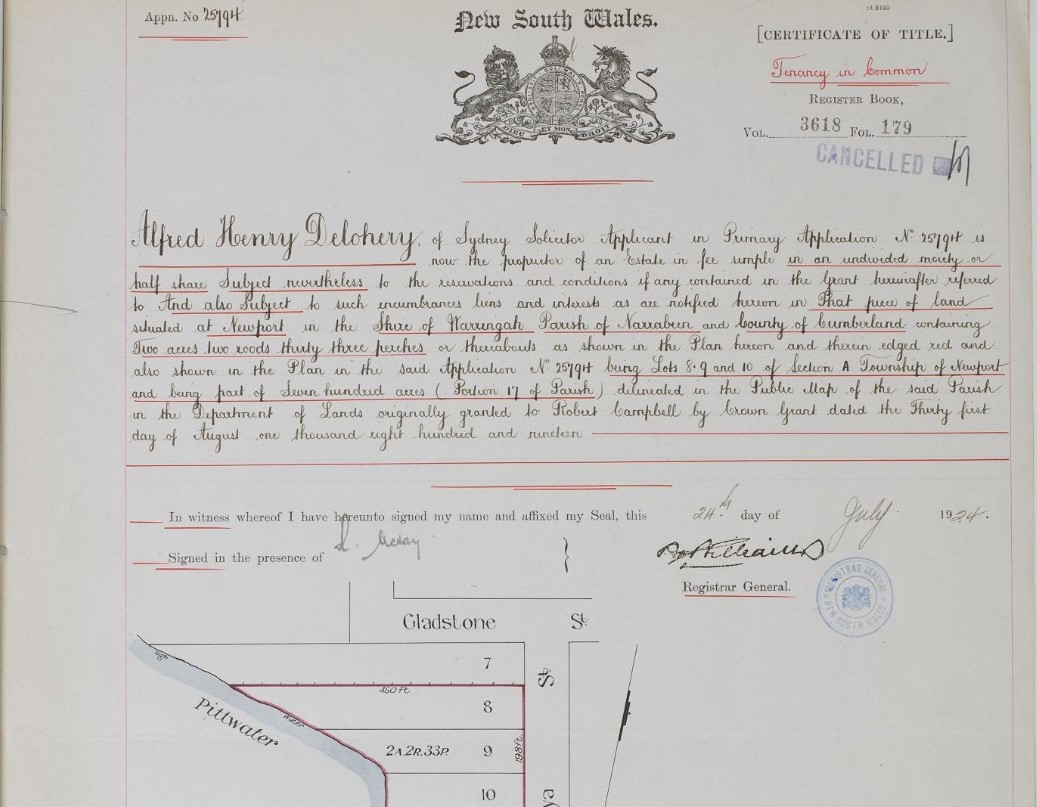 Appn. No 25794
New South Wales.
DIEU ET MON DROIT
[CERTIFICATE OF TITLE.]
Tenancy in Common
REGISTER BOOK,
VOL. 3618 FOL. 179
CANCELLED
Alfred Henry Delohery, of Sydney Solicitor Applicant in Primary Application No 25794 is
now the proprietor of an Estate in fee simple in an undivided moiety or
half share Subject nevertheless to the reservations and conditions if any contained in the Grant hereinafter referred
to And also Subject to such encumbrances liens and interests as are notified hereon in That piece of land
situated at Newport in the Shire of Warringah Parish of Narrabeen and County of Cumberland containing
Two acres two roods thirty three perches or thereabouts as shown in the Plan hereon and therein edged red and
also shown in the Plan in the said Application No 25794 being Lots 8·9 and 10 of Section A Township of Newport
and being part of Seven hundred acres (Portion 17 of Parish) delineated in the Public Map of the said Parish
in the Department of Lands originally granted to Robert Campbell by Crown Grant dated the Thirty first
day of August one thousand eight hundred and nineteen
In witness whereof I have hereunto signed my name and affixed my Seal, this 24th day of July 1924.
Signed in the presence of
Registrar General.
REGISTRAR GENERAL
NEW SOUTH WALES
Gladstone St.
7
St.
High
460 ft.
8
Water
Pittwater
2A.2R.33P.
9
198 ft.
10
ya